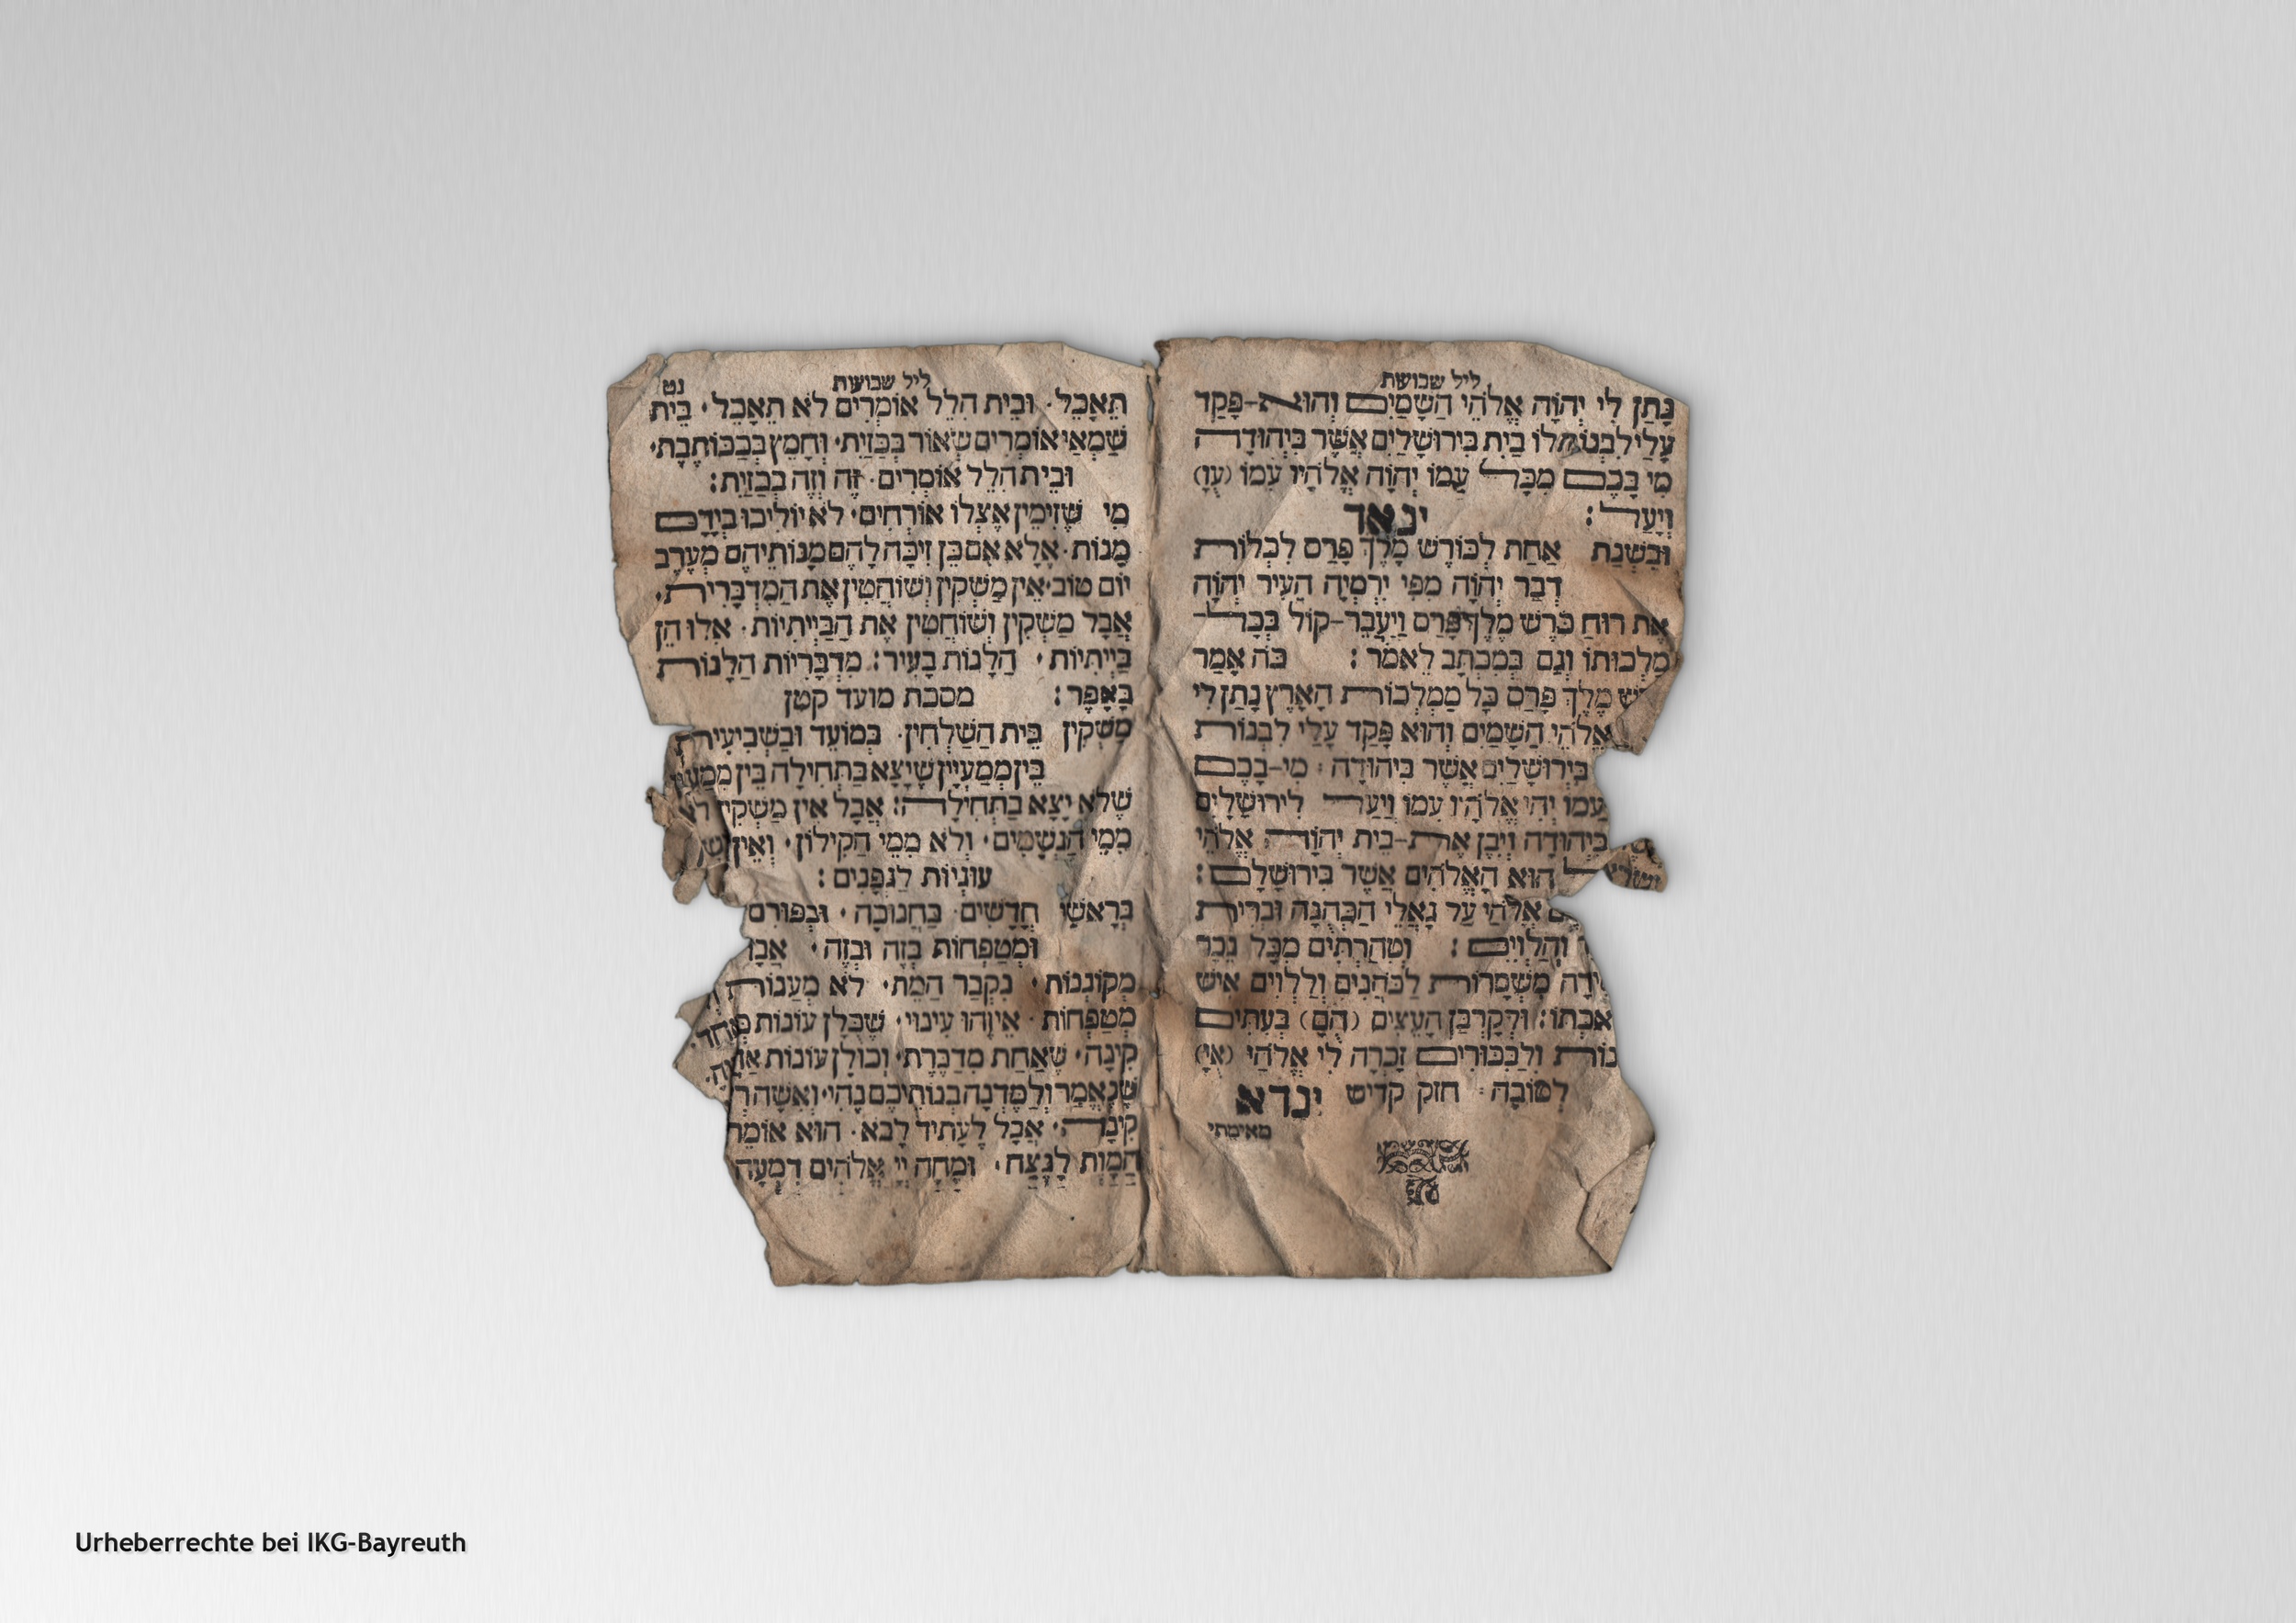 ליל שבועות
נָתַן לִי יְהֹוָה אֱלֹהֵי הַשָּׁמַיִם וְהוּא־פָּקַד
עָלַי לִבְנוֹת לוֹ בַיִת בִּירוּשָׁלַיִם אֲשֶׁר בִּיהוּדָה
מִי בָכֶם מִכָּל עַמּוֹ יְהֹוָה אֱלֹהָיו עִמּוֹ (עו)
וְיָעַל :
ינאד
וּבִשְׁנַת אַחַת לְכוֹרֶשׁ מֶלֶךְ פָּרַס לִכְלוֹת
דְבַר יְהֹוָה מִפִּי יִרְמְיָה הֵעִיר יְהֹוָה
אֶת רוּחַ כֹּרֶשׁ מֶלֶךְ פָּרַס וַיַּעֲבֶר־קוֹל בְּכָל־
מַלְכוּתוֹ וְגַם בְּמִכְתָּב לֵאמֹר : כֹּה אָמַר
מֶלֶךְ פָּרַס כָּל מַמְלְכוֹת הָאָרֶץ נָתַן לִי
אֱלֹהֵי הַשָּׁמַיִם וְהוּא פָקַד עָלַי לִבְנוֹת
בִּירוּשָׁלַיִם אֲשֶׁר בִּיהוּדָה · מִי־בָכֶם
עַמּוֹ יְהִי אֱלֹהָיו עִמּוֹ וְיַעַל לִירוּשָׁלַיִם
בִּיהוּדָה וְיִבֶן אֶת־בֵּית יְהֹוָה אֱלֹהֵי
הוּא הָאֱלֹהִים אֲשֶׁר בִּירוּשָׁלִָם :
אֱלֹהַי עַל גָּאֳלֵי הַכְּהֻנָּה וּבְרִית
וְהַלְוִיִּם : וְטִהַרְתִּים מִכָּל נֵכָר
מִשְׁמָרוֹת לַכֹּהֲנִים וְלַלְוִיִּם אִישׁ
וּלְקָרְבַּן הָעֵצִים (הם) בְּעִתִּים
וְלַבִּכּוּרִים זָכְרָה לִּי אֱלֹהַי (אי)
לְטוֹבָה : חזק קדיש ינדא
מאימתי
ליל שבועות נט
תֵּאָכֵל · וּבֵית הִלֵּל אוֹמְרִים לֹא תֵאָכֵל · בֵּית
שַׁמַּאי אוֹמְרִים שְׂאוֹר בְּכַזַּיִת · וְחָמֵץ בְּכַכּוֹתֶבֶת ·
וּבֵית הִלֵּל אוֹמְרִים · זֶה וָזֶה בְּכַזַּיִת :
מִי שֶׁזִּימֵּין אֶצְלוֹ אוֹרְחִים · לֹא יוֹלִיכוּ בְיָדָם
מָנוֹת · אֶלָּא אִם כֵּן זִיכָּה לָהֶם מָנוֹתֵיהֶם מֵעֶרֶב
יוֹם טוֹב · אֵין מַשְׁקִין וְשׁוֹחֲטִין אֶת הַמִּדְבָּרִיּת ·
אֲבָל מַשְׁקִין וְשׁוֹחֲטִין אֶת הַבַּיְיתִיּוֹת · אֵלּוּ הֵן
בַּיְיתִיּוֹת · הַלָּנוֹת בָּעִיר : מִדְבָּרִיּוֹת הַלָּנוֹת
בָּאֲפָר : מסכת מועד קטן
מַשְׁקִין בֵּית הַשְּׁלָחִין · בְּמוֹעֵד וּבַשְּׁבִיעִית
בֵּין מִמַּעְיָין שֶׁיָּצָא בַּתְּחִילָּה בֵּין מִמַּעְיָין
שֶׁלֹּא יָצָא בַתְּחִילָּה : אֲבָל אֵין מַשְׁקִין
מִמֵּי הַגְּשָׁמִים · וְלֹא מִמֵּי הַקִּילוֹן · וְאֵין
עוּגִיּוֹת לַגְּפָנִים :
בְּרָאשֵׁי חֳדָשִׁים · בַּחֲנוּכָּה · וּבְפוּרִים
וּמְטַפְּחוֹת בְּזֶה וּבְזֶה ·
מְקוֹנְנוֹת · נִקְבַּר הַמֵּת · לֹא מְעַנּוֹת
מְטַפְּחוֹת · אֵיזֶהוּ עִינּוּי · שֶׁכֻּלָּן עוֹנוֹת
קִינָה · שֶׁאַחַת מְדַבֶּרֶת · וְכוּלָּן עוֹנוֹת
שֶׁנֶּאֱמַר וְלַמֵּדְנָה בְנוֹתֵיכֶם נֶהִי · וְאִשָּׁה
קִינָה · אֲבָל לֶעָתִיד לָבֹא · הוּא אוֹמֵר
הַמָּוֶת לָנֶצַח · וּמָחָה יְיָ אֱלֹהִים דִּמְעָה
Urheberrechte bei IKG-Bayreuth